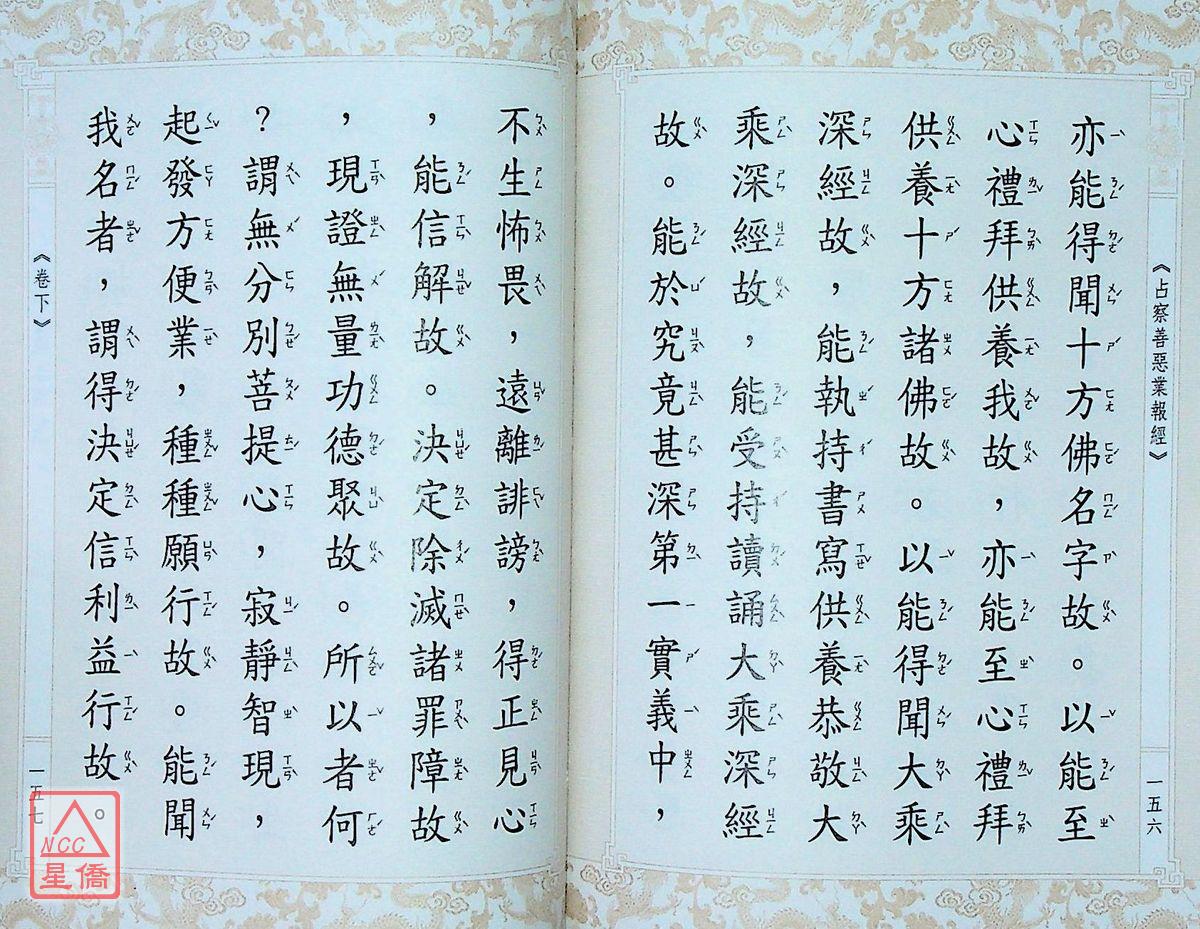 《占察善惡業報經》
一五六
亦能得聞十方佛名字故。以能至
心禮拜供養我故，亦能至心禮拜
供養十方諸佛故。以能得聞大乘
深經故，能執持書寫供養恭敬大
乘深經故，能受持讀誦大乘深經
故。能於究竟甚深第一實義中，
不生怖畏，遠離誹謗，得正見心
，能信解故。決定除滅諸罪障故
，現證無量功德聚故。所以者何
？謂無分別菩提心，寂靜智現，
起發方便業，種種願行故。能聞
我名者，謂得決定信利益行故。
《卷下》
一五七
NCC
星僑